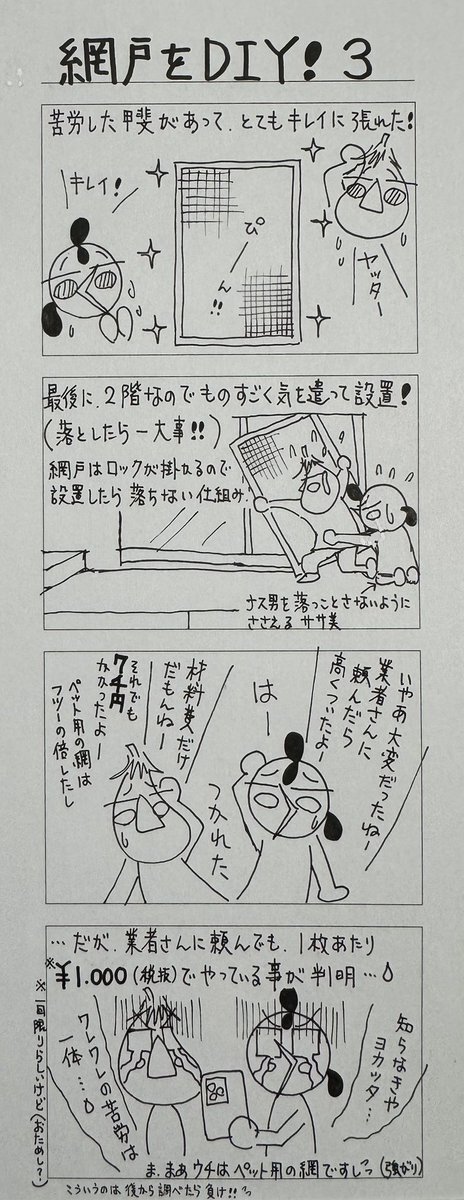 網戸をDIY！3
苦労した甲斐があって、とてもキレイに張れた！
ヤッター
ぴーん!!
キレイ！
最後に、2階なのでものすごく気を遣って設置！
（落としたら一大事!!）
網戸はロックが掛かるので
設置したら落ちない仕組み！
ナス男を落っことさないように
ささえるササ美
いやあ大変だったねー
業者さんに
頼んだら
高くつくよー
はー
材料費だけ
だもんねー
それでも
7千円
かかったよー
ペット用の網は
フツーの倍したし
つかれた、
…だが、業者さんに頼んでも、1枚あたり
※¥1.000（税抜）でやっている事が判明…
知らなきゃ
ヨカッタ…
ワレワレの苦労は
一体…
ま、まぁウチはペット用の網ですしっ（強がり）
※一回限りらしいけど（おためし？）
こういうのは後から調べたら負け!!っ